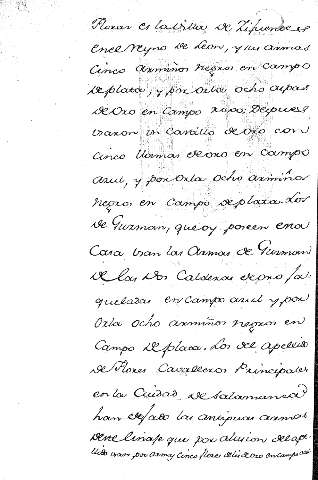 Florar es la Villa de Zifuentes
en el Reyno de Leon, y sus armas
Cinco armiños negros en campo
de plata, y por orla ocho aspas
de oro en campo roxo; Despues
usaron un Castillo de oro con
cinco llamas de oro en campo
azul, y por orla ocho armiños
negros en campo de plata. Los
de Guzman, que oy poseen esta
Casa usan las Armas de Guzman
de las Dos Calderas de oro ja-
queladas en campo azul y por
Orla ocho armiños negros en
Campo de plata. Los del Apellido
de Flores Cavalleros Principales
en la Ciudad de Salamanca
han dejado las antiguas armas
de este linaje que por alusion del ape-
llido usan por armas cinco flores de lis de oro en campo azul